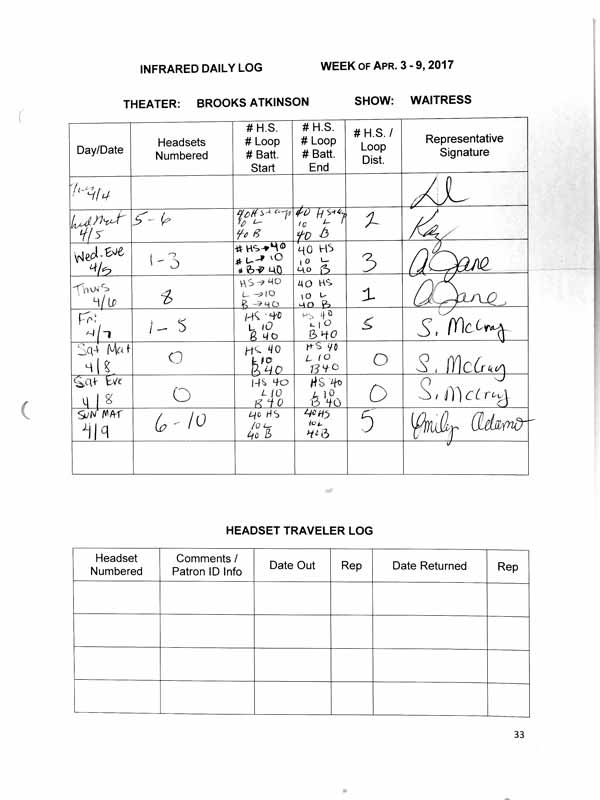 INFRARED DAILY LOG WEEK OF APR. 3 - 9, 2017
THEATER: BROOKS ATKINSON SHOW: WAITRESS
Day/Date Headsets Numbered # H.S. # Loop # Batt. Start # H.S. # Loop # Batt. End # H.S. / Loop Dist. Representative Signature
4/4
Wed Mat 4/5 5-6 40 HS 10 L 40 B 40 HS 10 L 40 B 2 Kay
Wed. Eve 4/5 1-3 # HS→40 # L→10 # B→40 40 HS 10 L 40 B 3 A Jane
Thurs 4/6 8 HS→40 L→10 B→40 40 HS 10 L 40 B 1 A Jane
Fri. 4/7 1-5 HS 40 L 10 B 40 HS 40 L10 B 40 5 S. McCray
Sat Mat 4/8 0 HS 40 L10 B40 HS 40 L 10 B40 0 S. McCray
Sat Eve 4/8 0 HS 40 L10 B 40 HS 40 L10 B 40 0 S. McCray
SUN MAT 4/9 6-10 40 HS 10 L 40 B 40HS 10L 40B 5 Emily Adamo
HEADSET TRAVELER LOG
Headset Numbered Comments / Patron ID Info Date Out Rep Date Returned Rep
33